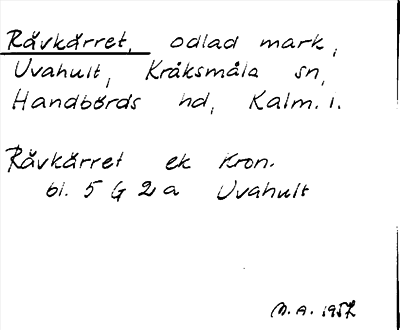 Rävkärret, odlad mark,
Uvahult, Kråksmåla sn,
Handbörds hd, Kalm. l.
Rävkärret ek kron.
bl. 5 G 2 a Uvahult
M.A. 1957